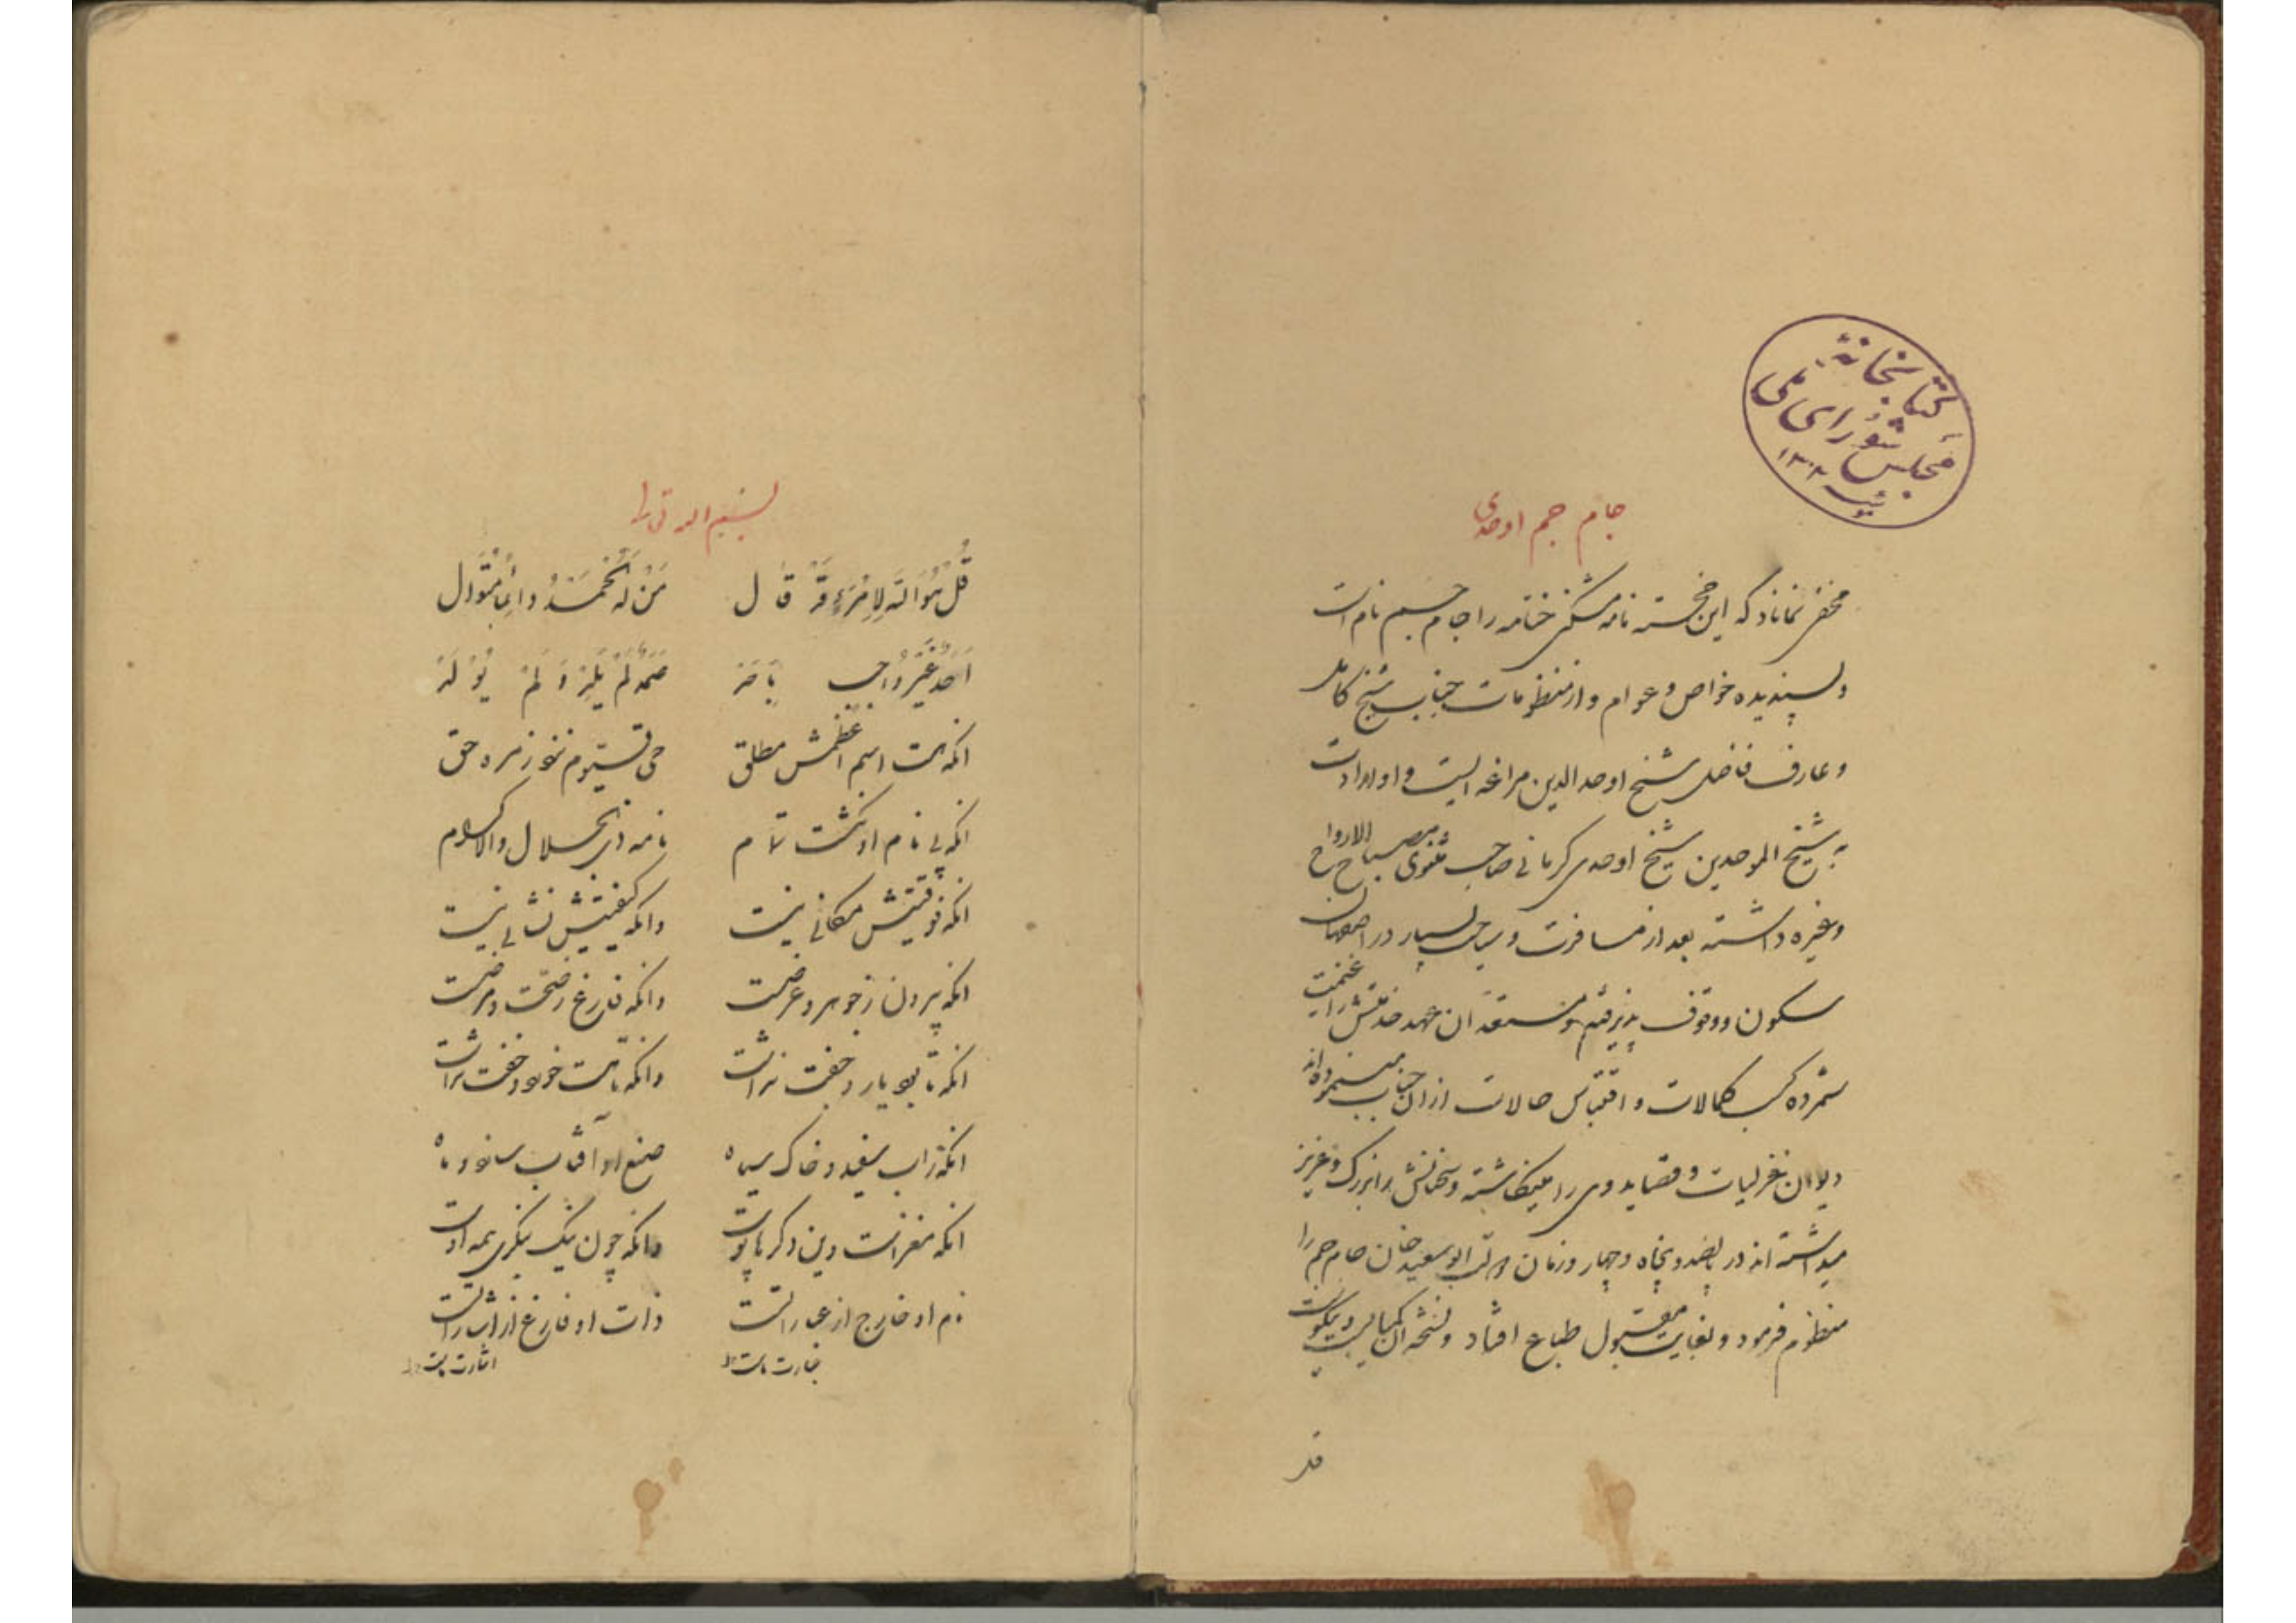 کتابخانهٔ
مجلس شورای ملی
جام جم اوحدی
مخفی نماناد که این خجسته نامه مشکین ختامه را جام جم نام است
و پسندیده خواص و عوام و از منظومات جناب شیخ کامل
و عارف فاضل شیخ اوحد الدین مراغه ایست و او ارادت
به شیخ الموحدین شیخ اوحدی کرمانی صاحب مثنوی مصباح الارواح
و غیره داشته بعد از مسافرت و سیاحت بسیار در اصفهان
سکون و وقوف پذیرفته و آن عهد خدمتش را غنیمت
شمرده کسب کمالات و اقتباس حالات از آن جناب مینموده اند
دیوان غزلیات و قصاید وی را مینگاشته و سخنانش را بزرگ و عزیز
میداشته اند در و پنجاه و چهار و زمان ابوسعید خان جام جم را
منظوم فرمود و بغایت مقبول طباع افتاد و نسخه آن
قل هو الله لامرء قد قال
من له الحمد دائما متوال
احد غیر واجب باحد
صمد لم یلد و لم یولد
انکه هست اسم اعظمش مطلق
حی قیوم نزد زمره حق
انکه بی نام او نگشت تمام
نامه ذی الجلال والاکرام
انکه فوقیتش مکانی نیست
وانکه کیفیتش نشانی نیست
انکه بیرون ز جوهر و عرضست
وانکه فارغ ز صحت و مرضست
انکه تا بود یار و جفت نداشت
وانکه تا هست خورد و خفت نداشت
انکه زاب سفید و خاک سیاه
صنع او آفتاب سازد و ماه
انکه مغز است وین دگرها پوست
وانکه چون نیک بنگری همه اوست
نام او خارج از عبارتست
ذات او فارغ از اشارتست